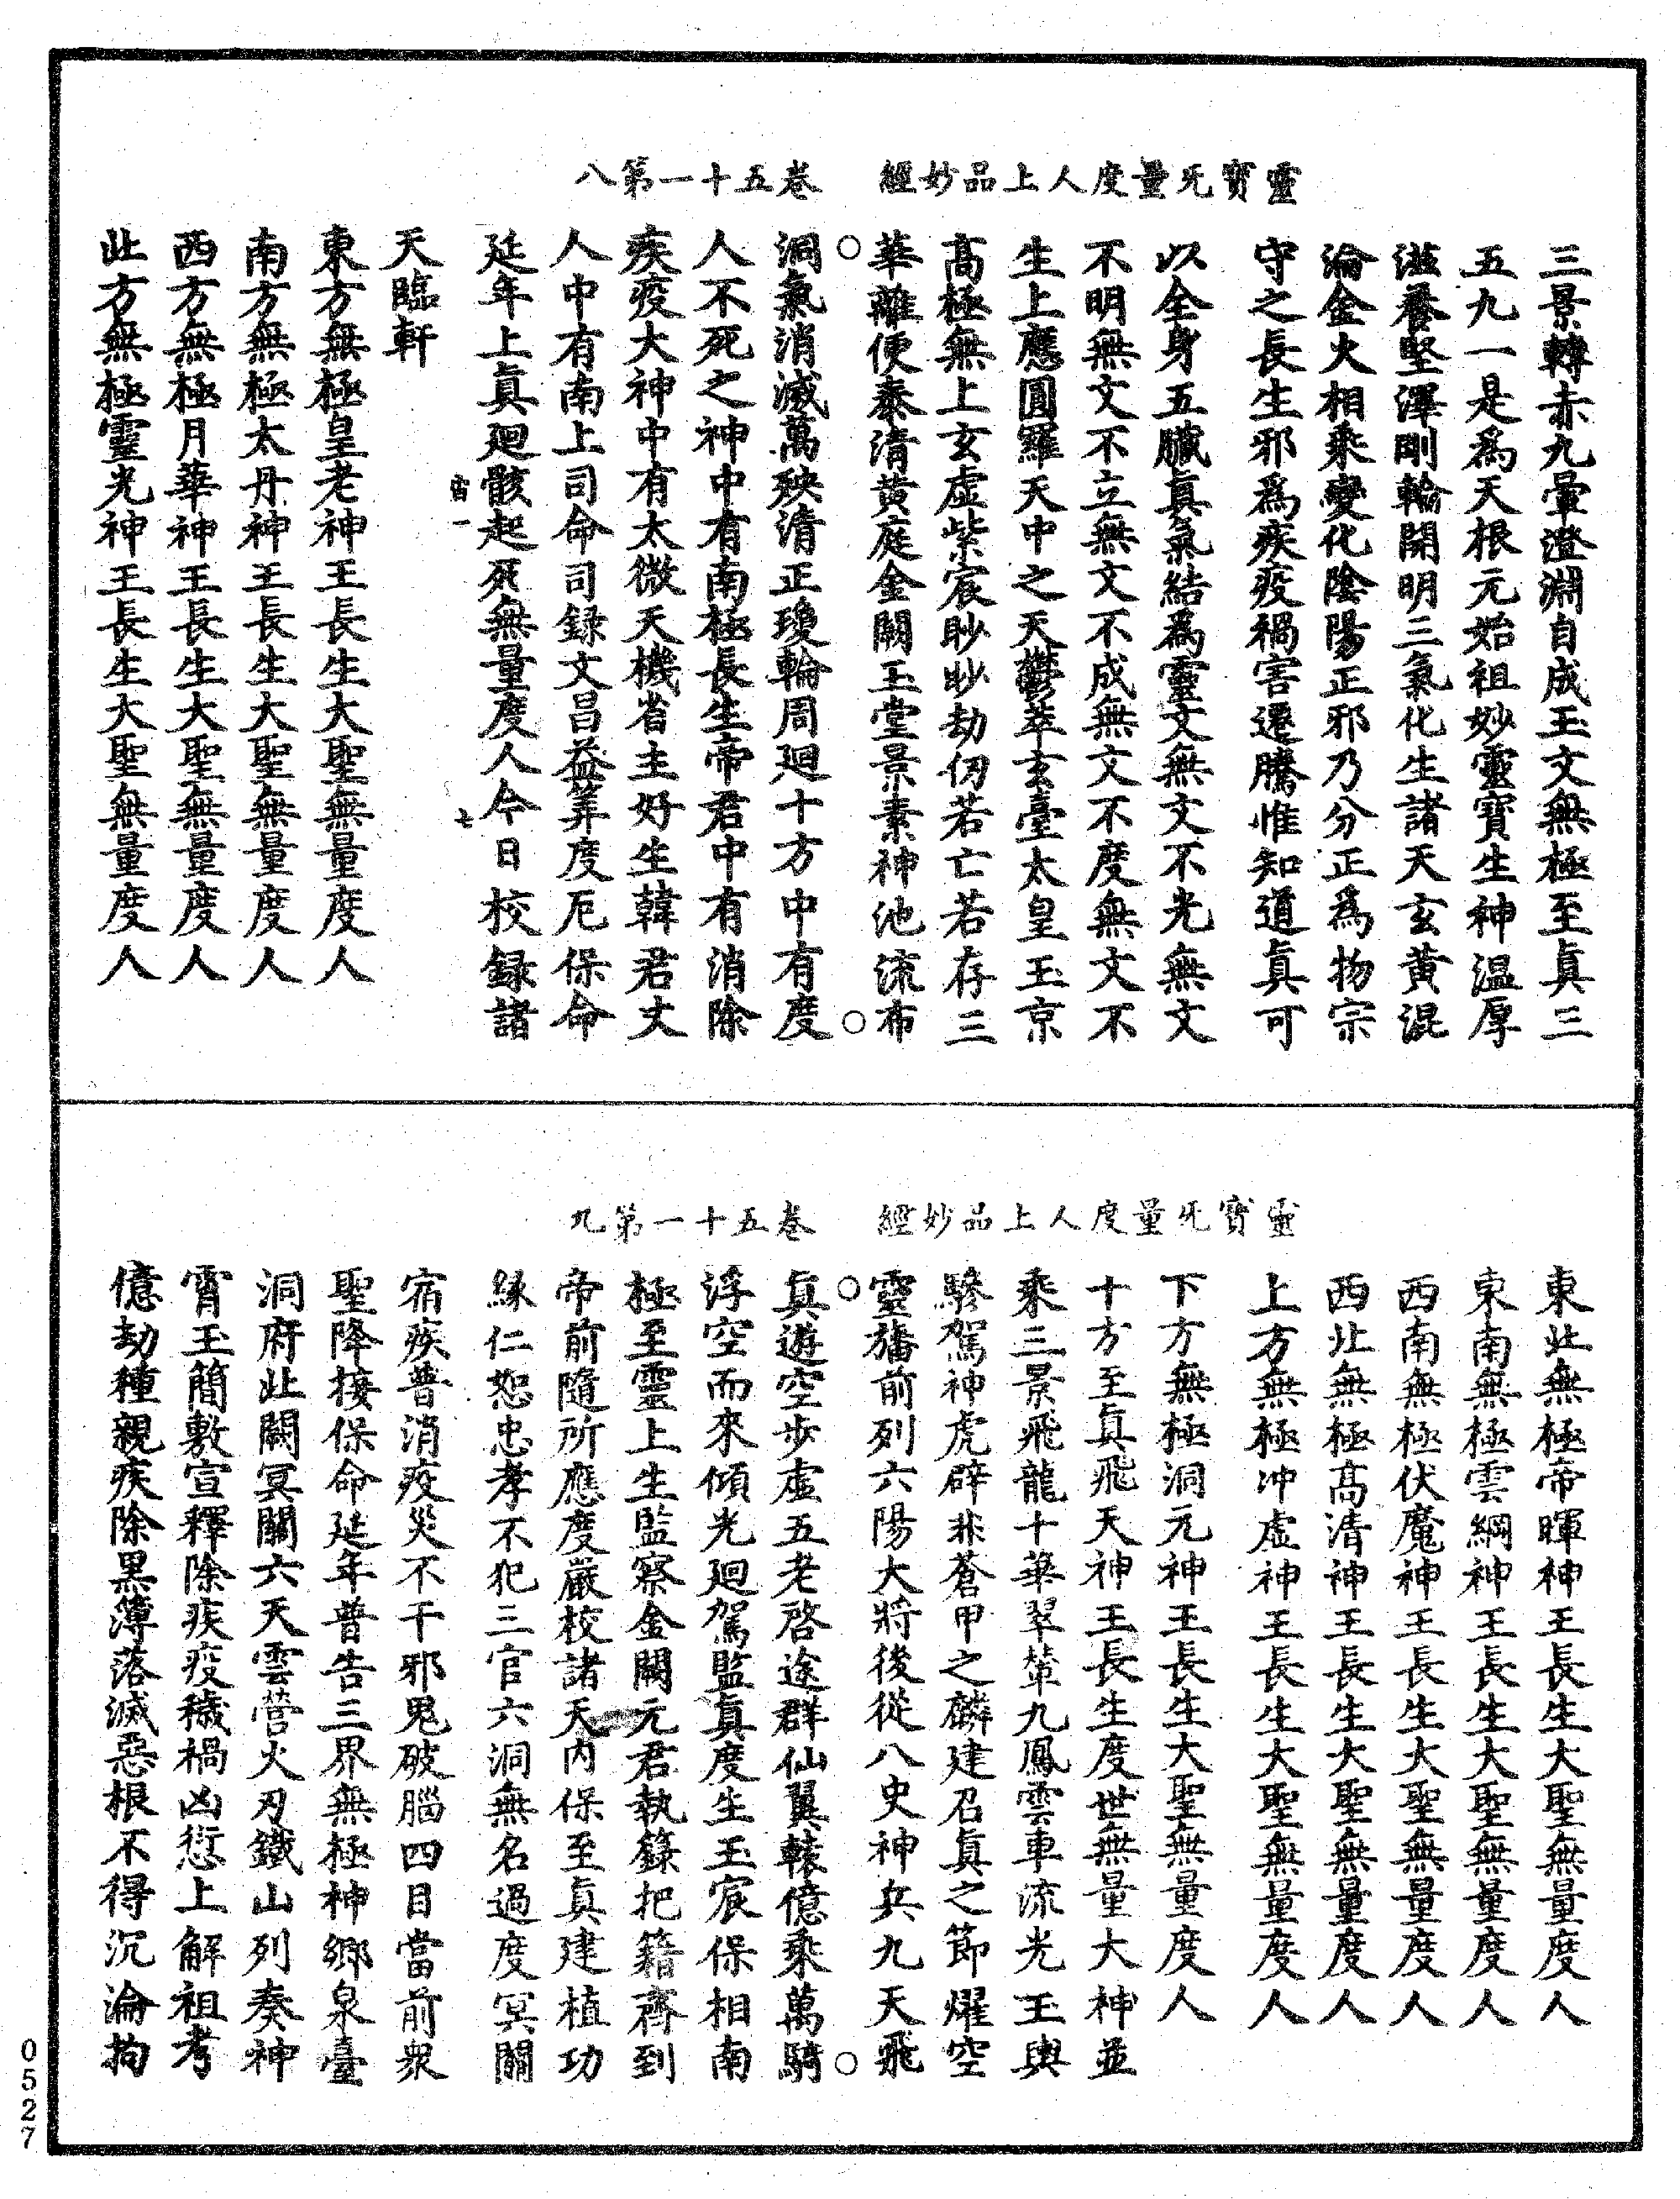 靈寶无量度人上品妙經　卷五十一第八
三景轉赤九暈澄淵自成玉文無極至真三
五九一是為天根元始祖妙靈寶生神溫厚
滋養堅澤剛輪開明三氣化生諸天玄黃混
淪金火相乘變化陰陽正邪乃分正為物宗
守之長生邪為疾疫禍害遷騰惟知道真可
以全身五臟真氣結為靈文無文不光無文
不明無文不立無文不成無文不度無文不
生上應圓羅天中之天鬱萃玄臺太皇玉京
高極無上玄虛紫宸眇眇劫仞若亡若存三
華離便泰清黃庭金闕玉堂景素神池流布
○洞氣消滅萬殃清正瓊輪周迴十方中有度○
人不死之神中有南極長生帝君中有消除
疾疫大神中有太微天機省主好生韓君丈
人中有南上司命司錄文昌益筭度厄保命
延年上真廻骸起死無量度人今日校錄諸
雷一　七
天臨軒
東方無極皇老神王長生大聖無量度人
南方無極太丹神王長生大聖無量度人
西方無極月華神王長生大聖無量度人
北方無極靈光神王長生大聖無量度人
靈寶无量度人上品妙經　卷五十一第九
東北無極帝暉神王長生大聖無量度人
東南無極雲綱神王長生大聖無量度人
西南無極伏魔神王長生大聖無量度人
西北無極高清神王長生大聖無量度人
上方無極沖虛神王長生大聖無量度人
下方無極洞元神王長生大聖無量度人
十方至真飛天神王長生度世無量大神並
乘三景飛龍十華翠輦九鳳雲車流光玉輿
驂駕神虎辟非蒼甲之麟建召真之節燿空
靈旛前列六陽大將後從八史神兵九天飛
○真遊空步虛五老啓途群仙翼轅億乘萬騎○
浮空而來傾光廻駕監真度生玉宸保相南
極至靈上生監察金闕元君執籙把籍齊到
帝前隨所應度嚴校諸天內保至真建植功
緣仁恕忠孝不犯三官六洞無名過度冥關
宿疾普消疫災不干邪鬼破腦四目當前衆
聖降接保命延年普告三界無極神鄉泉臺
洞府北闕冥關六天雲營火刃鐵山列奏神
霄玉簡敷宣釋除疾疫穢禍凶愆上解祖考
億劫種親疾除黑簿落滅惡根不得沉淪拘
0527